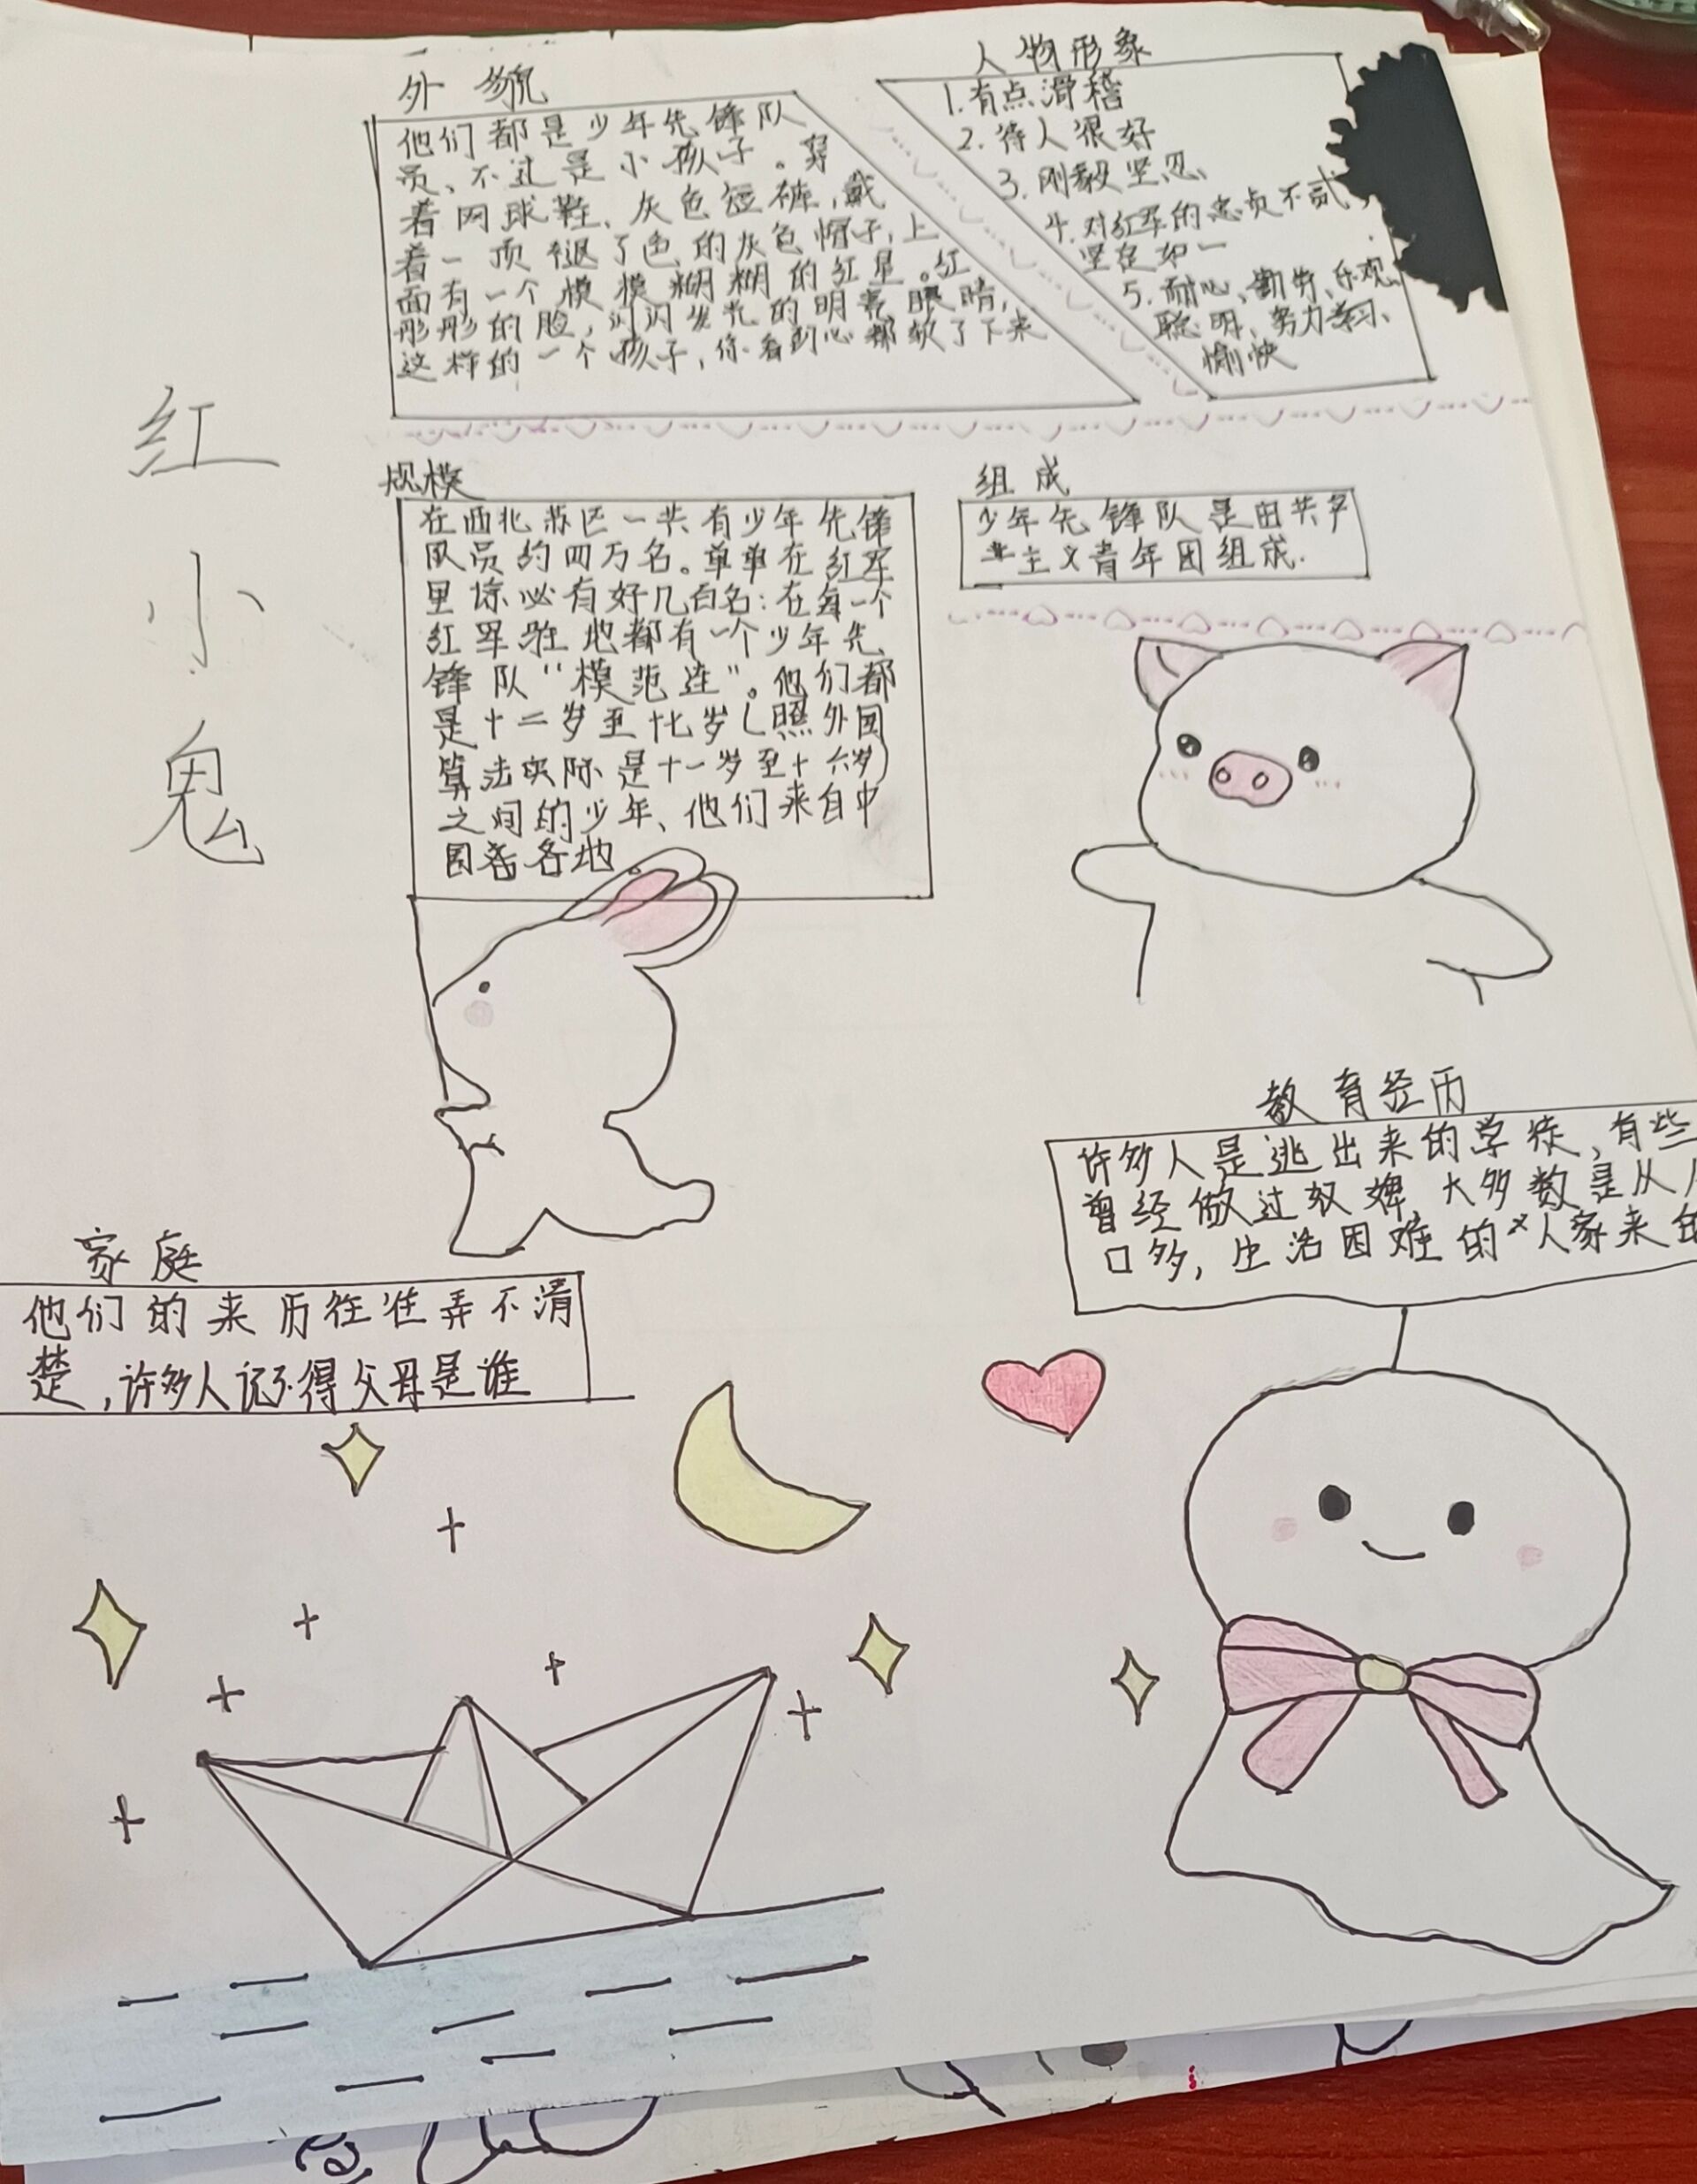 红
小
鬼
外貌
他们都是少年先锋队
员、不过是小孩子。穿
着网球鞋、灰色短裤,戴
着一顶褪了色的灰色帽子,上
面有一个模模糊糊的红星。红
彤彤的脸,闪闪发光的明亮眼睛,
这样的一个孩子,你看到心都软了下来
人物形象
1.有点滑稽
2.待人很好
3.刚毅坚忍、
4.对红军的忠贞不贰,
坚定如一
5.耐心、勤劳、乐观、
聪明、努力学习、
愉快
规模
在西北苏区一共有少年先锋
队员约四万名。单单在红军
里谅必有好几百名:在每一个
红军驻地都有一个少年先
锋队“模范连”。他们都
是十二岁至十七岁(照外国
算法实际是十一岁至十六岁)
之间的少年、他们来自中
国各地。
组成
少年先锋队是由共产
主义青年团组成.
教育经历
许多人是逃出来的学徒、有些
曾经做过奴婢,大多数是从人
口多,生活困难的人家来的
家庭
他们的来历往往弄不清
楚,许多人记不得父母是谁